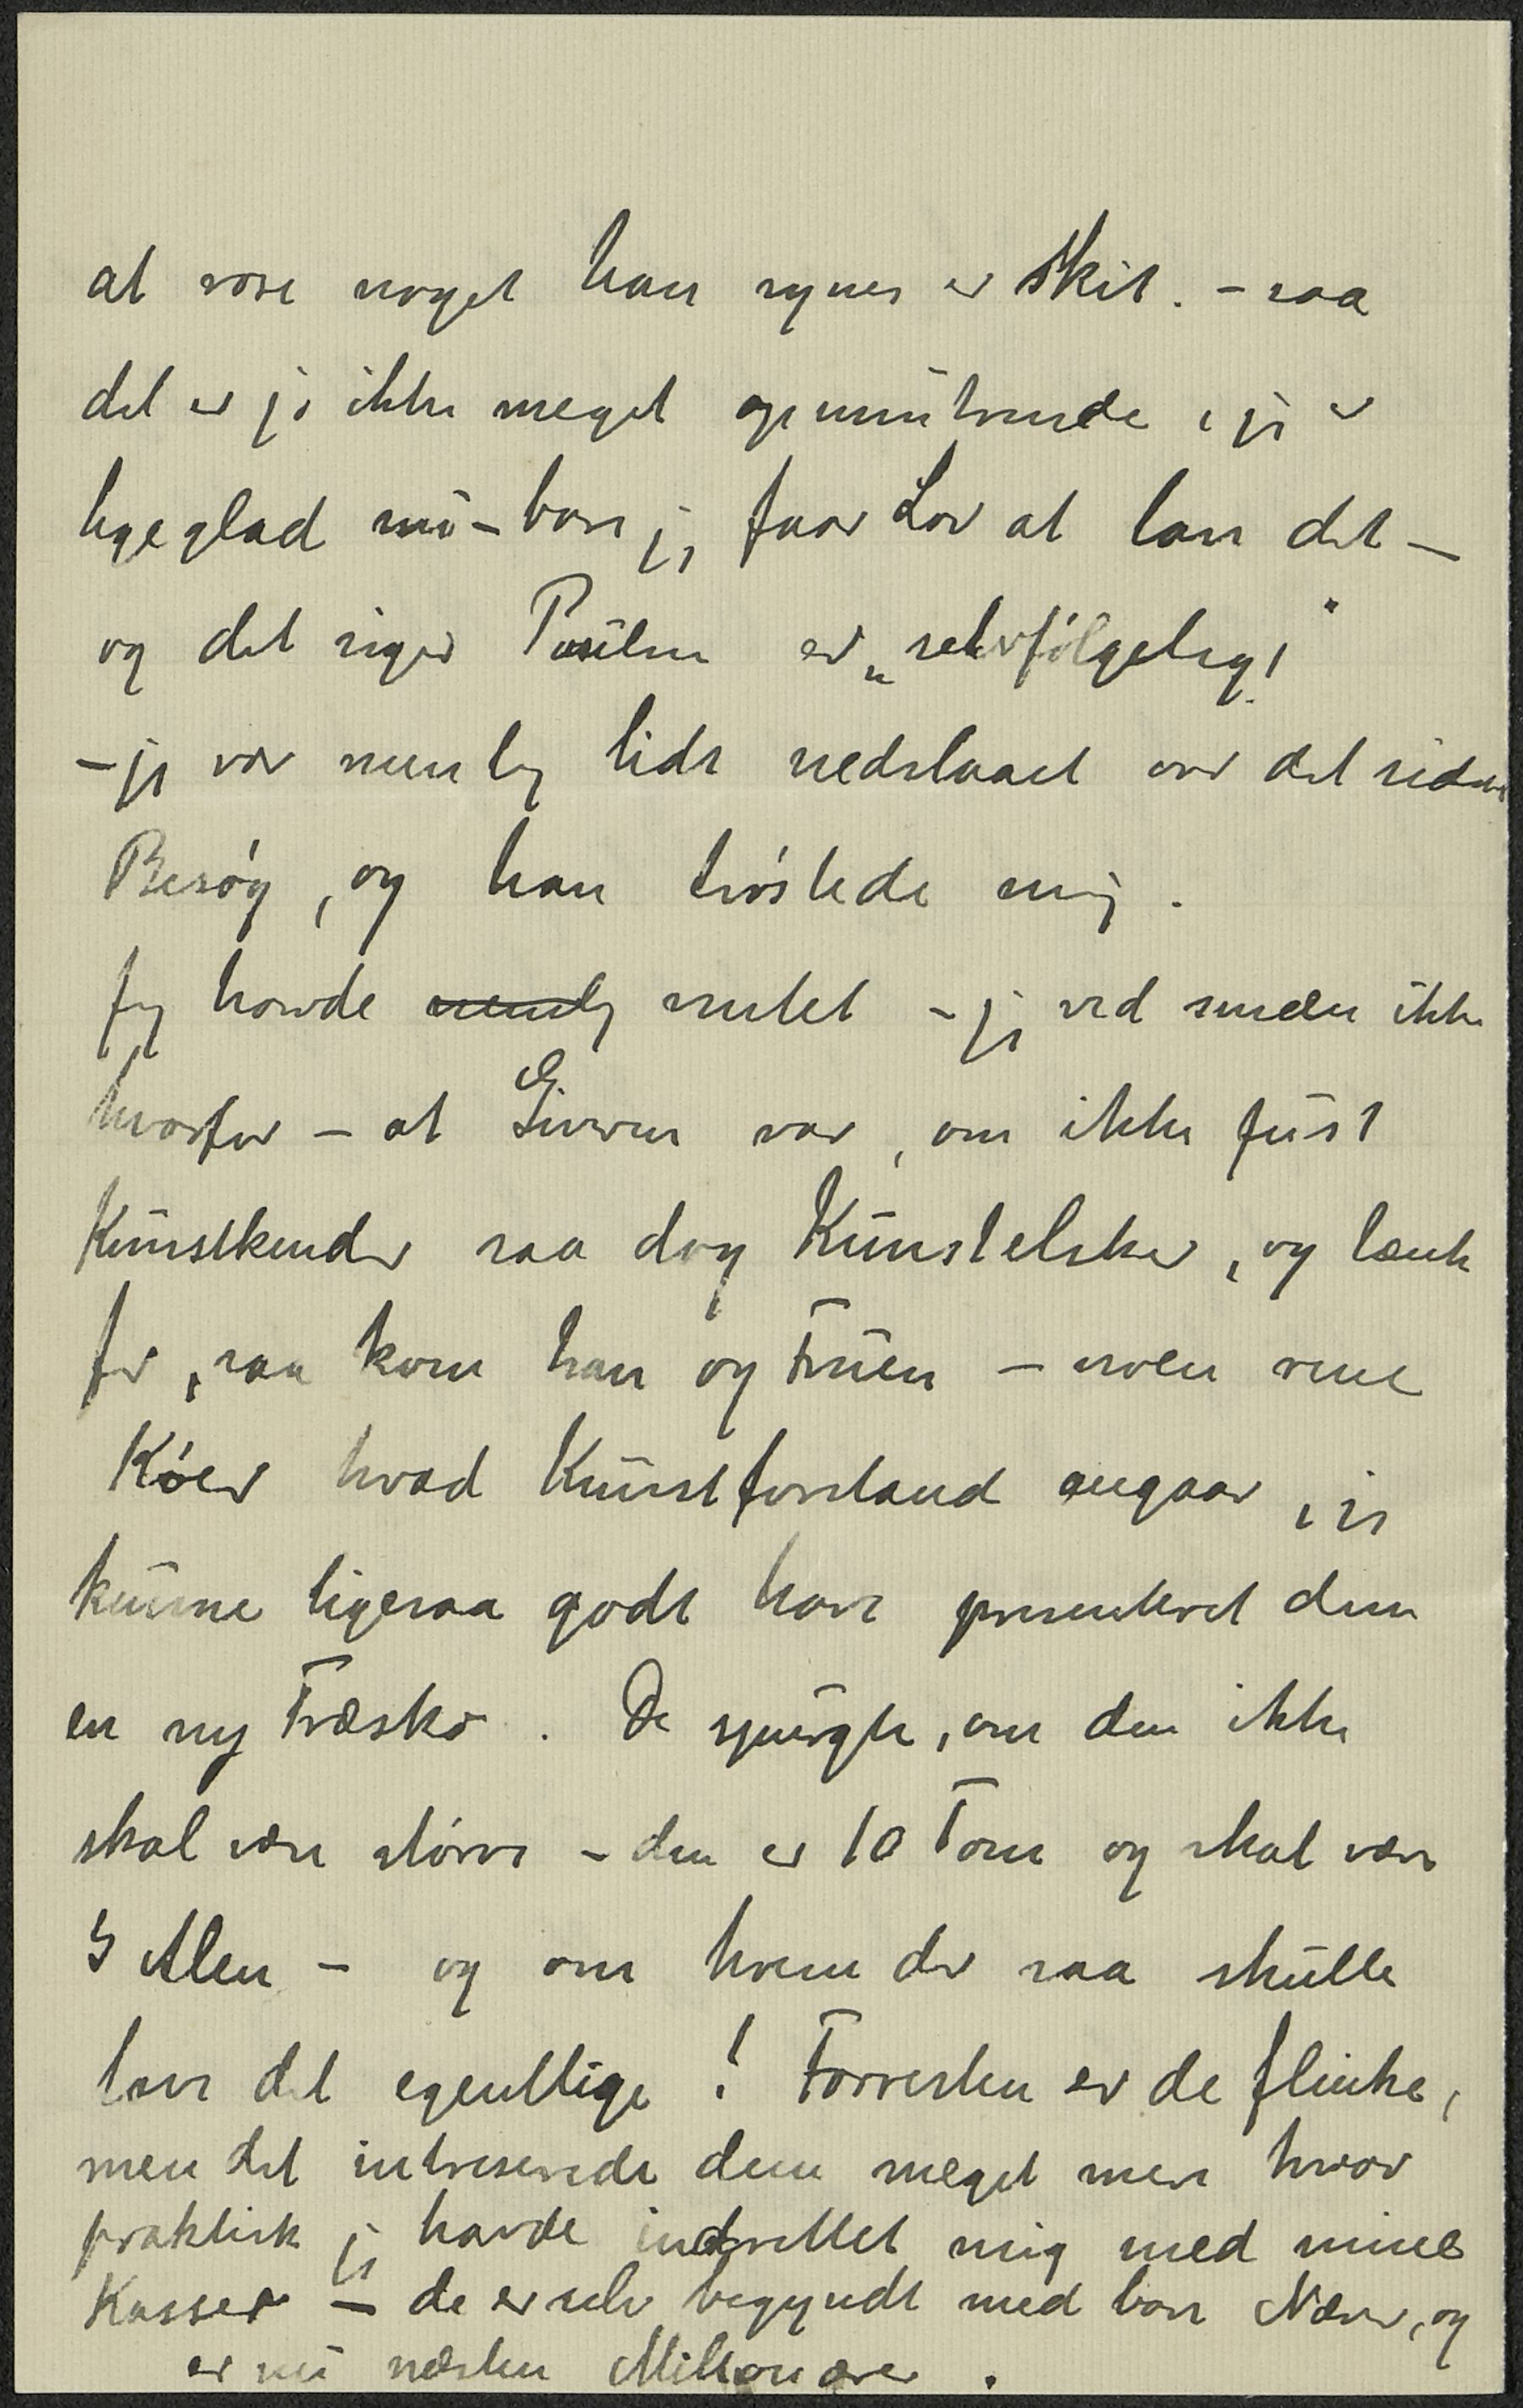 at rose noget han synes er Skit. - saa
det er jo ikke meget opmuntrende, jeg er
ligeglad nu - bare jeg faar Lov at lave det -
og det siger Poulsen er „selvfølgelig!"
- jeg var nemlig lidt nedslaaet over det sidste
Besøg, og han trøstede mig.
Jeg havde nemlig ventet - jeg ved smeder ikke
hvorfor - at Giveren var, om ikke just
Kunstkender saa dog Kunstelsker, og tænk
Jer, saa kom han og Fruen - noen rene
Køer hvad Kunstforstand angaar, jeg
kunne ligesaa godt have presenteret dem
en ny Træsko. De spurgte, om den ikke
skal være større - den er 10 Tom og skal være
3 Alen - og om hvem der saa skulle
lave det egentlige! Forresten er de flinke,
men det intreserede dem meget mere hvor
praktisk jeg havde indrettet mig med mine
Kasser - de er selv begyndt med bare Næver, og
er nu næsten Millionærer.